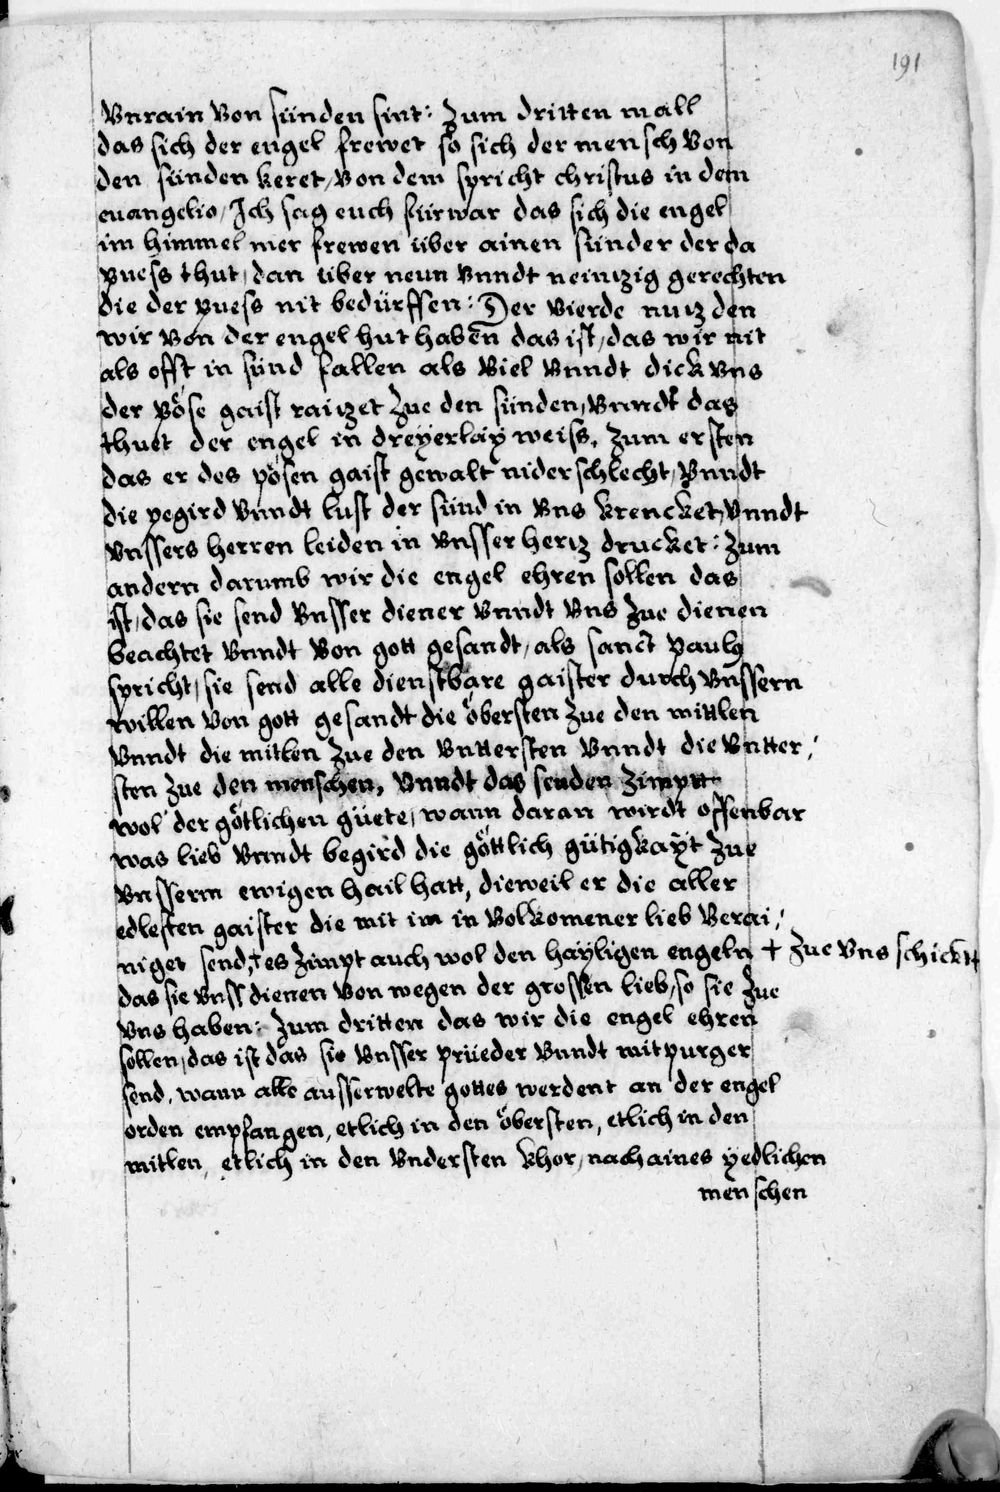 191
Vnrain von sünden sint: Zum dritten mall
das sich der engel frewet so sich der mensch von
den sünden keret, von dem spricht christus in dem
euangelio, Ich sag euch fürwar das sich die engel
im himmel mer frewen über ainen sünder der da
puess thut, dan über neun vnndt neintzig gerechten
die der puess nit bedürffen: Der vierde nutz den
wir von der engel hut haben das ist, das wir nit
als offt in sünd fallen als viel vnndt dick vns
der böse gaist raitzet zue den sünden, vnndt das
thuet der engel in dreyerlay weiss, zum ersten
das er des pösen gaist gewalt niderschlecht, vnndt
die pegird vnndt lust der sünd in vns krencket, vnndt
vnssers herren leiden in vnsser hertz drucket: Zum
andern darumb wir die engel ehren sollen das
ist, das sie send vnsser diener vnndt vns zue dienen
beachtet vnndt von gott gesandt, als sanct paulus
spricht, sie send alle dienstbäre gaister durch vnssern
willen von gott gesandt die öbersten zue den mittlen
vnndt die mitlen zue den vnttersten vnndt die vntter,
sten zue den menschen, vnndt das senden zimptt
wol der götlichen güete, wann daran wirdt offenbar
was lieb vnndt begird die göttlich gütigkaÿt zue
vnsserm ewigen hail hatt, dieweil er die aller
edlesten gaister die mit im in volkomener lieb verai,
niget send, † es zimpt auch wol den hayligen engeln † zue vns schicktt
das sie vnss dienen von wegen der grossen lieb, so sie zue
vns haben: Zum dritten das wir die engel ehren
sollen, das ist das sie vnsser prüeder vnndt mitpurger
send, wann alle ausserwelte gottes werdent an der engel
orden empfangen, etlich in den öbersten, etlich in den
mitlen, etlich in den vndersten khor, nach aines yedlichen
menschen